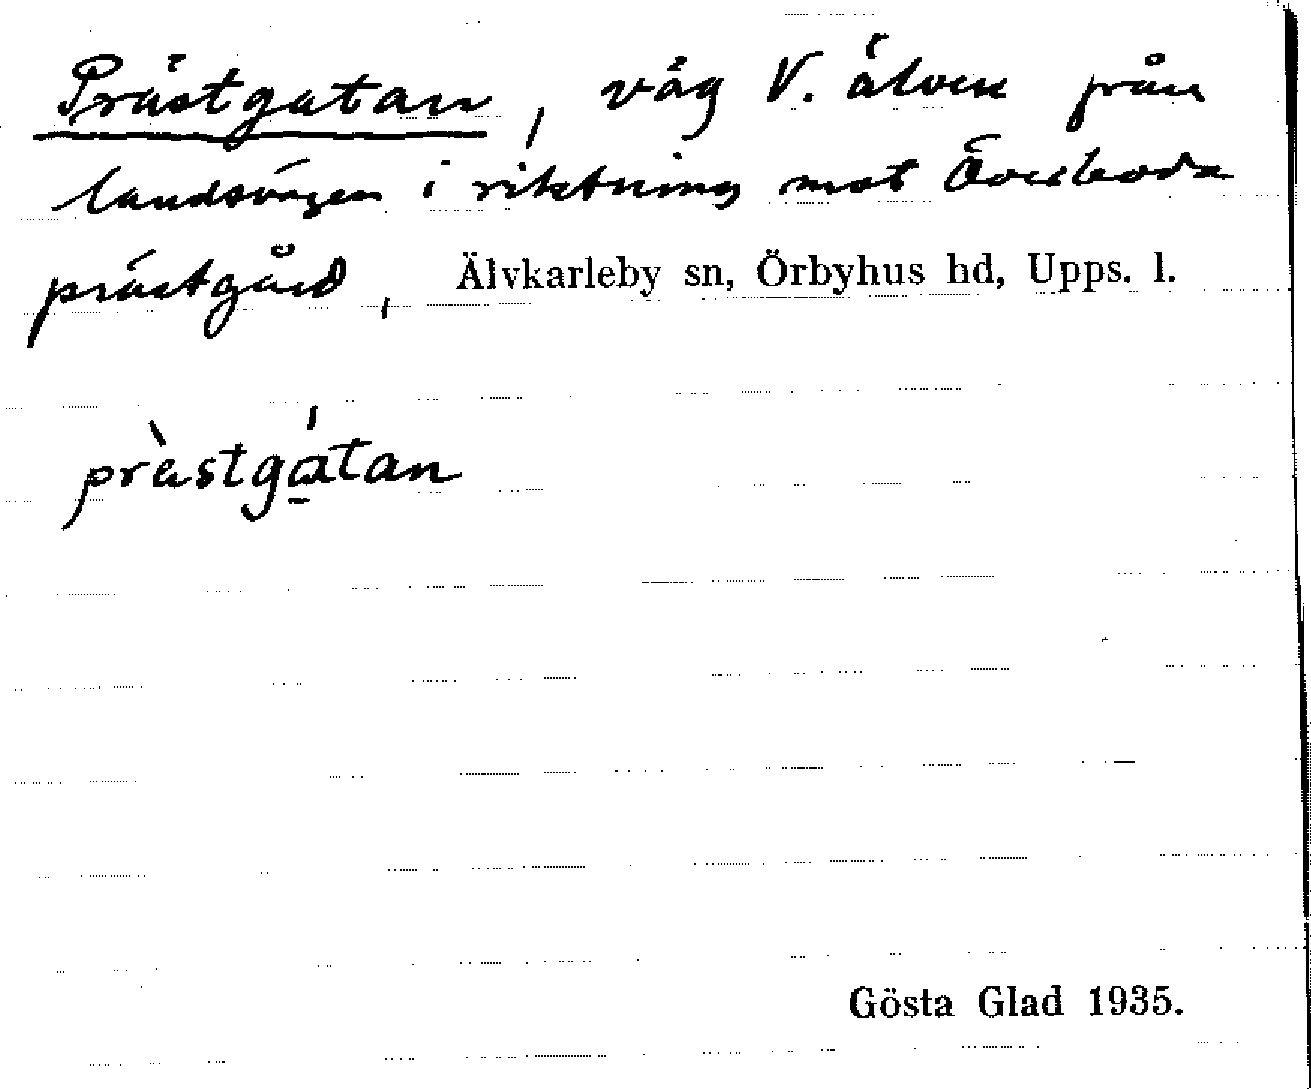 Prästgatan, väg V. älven från
landsvägen i riktning mot Överboda
prästgård, Älvkarleby sn, Örbyhus hd, Upps. l.
prὰstgátan
Gösta Glad 1935.